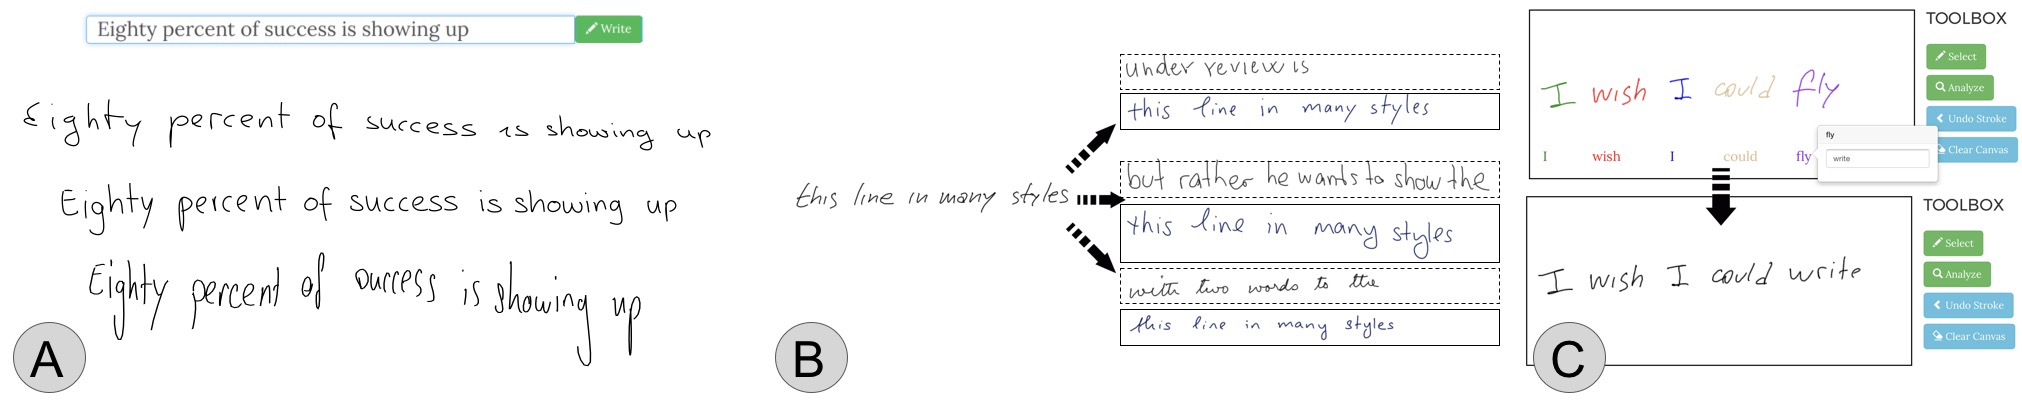 Eighty percent of success is showing up
Write
Eighty percent of success is showing up
Eighty percent of success is showing up
Eighty percent of success is showing up
A
this line in many styles
under review is
this line in many styles
but rather he wants to show the
this line in many styles
with two words to the
this line in many styles
B
I wish I could fly
I wish I could fly
fly
write
TOOLBOX
Select
Analyze
Undo Stroke
Clear Canvas
I wish I could write
TOOLBOX
Select
Analyze
Undo Stroke
Clear Canvas
C